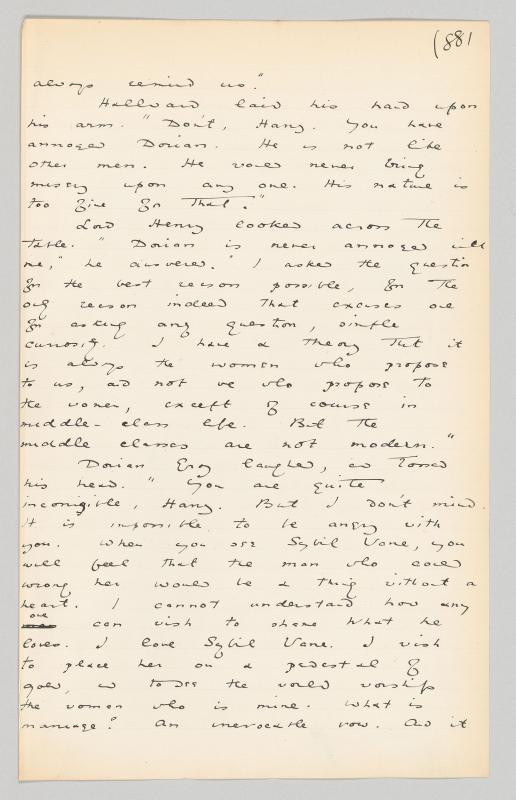 (881
always remind us."
Hallward laid his hand upon
his arm. "Don't, Harry. You have
annoyed Dorian. He is not like
other men. He would never bring
misery upon any one. His nature is
too fine for that."
Lord Henry looked across the
table. "Dorian is never annoyed with
me," he answered. "I asked the question
for the best reason possible, for the
only reason indeed that excuses one
for asking any question, simple
curiosity. I have a theory that it
is always the women who propose
to us, and not we who propose to
the women, except of course in
middle-class life. But the
middle classes are not modern."
Dorian Gray laughed, and tossed
his head. "You are quite
incorrigible, Harry. But I don't mind.
It is impossible to be angry with
you. When you see Sybil Vane, you
will feel that the man who could
wrong her would be a thing without a
heart. I cannot understand how any
one
can wish to shame what he
loves. I love Sybil Vane. I wish
to place her on a pedestal of
gold, and to see the world worship
the woman who is mine. What is
marriage? An irrevocable vow. And it